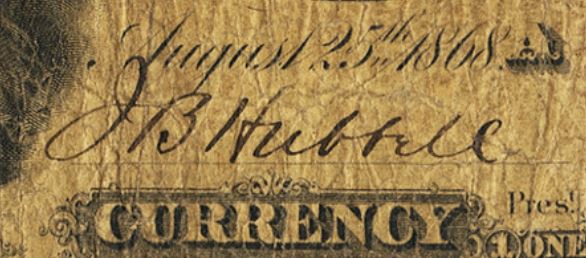 August 25th 1868.
J B Hubbell
Prest
CURRENCY
1 ONE